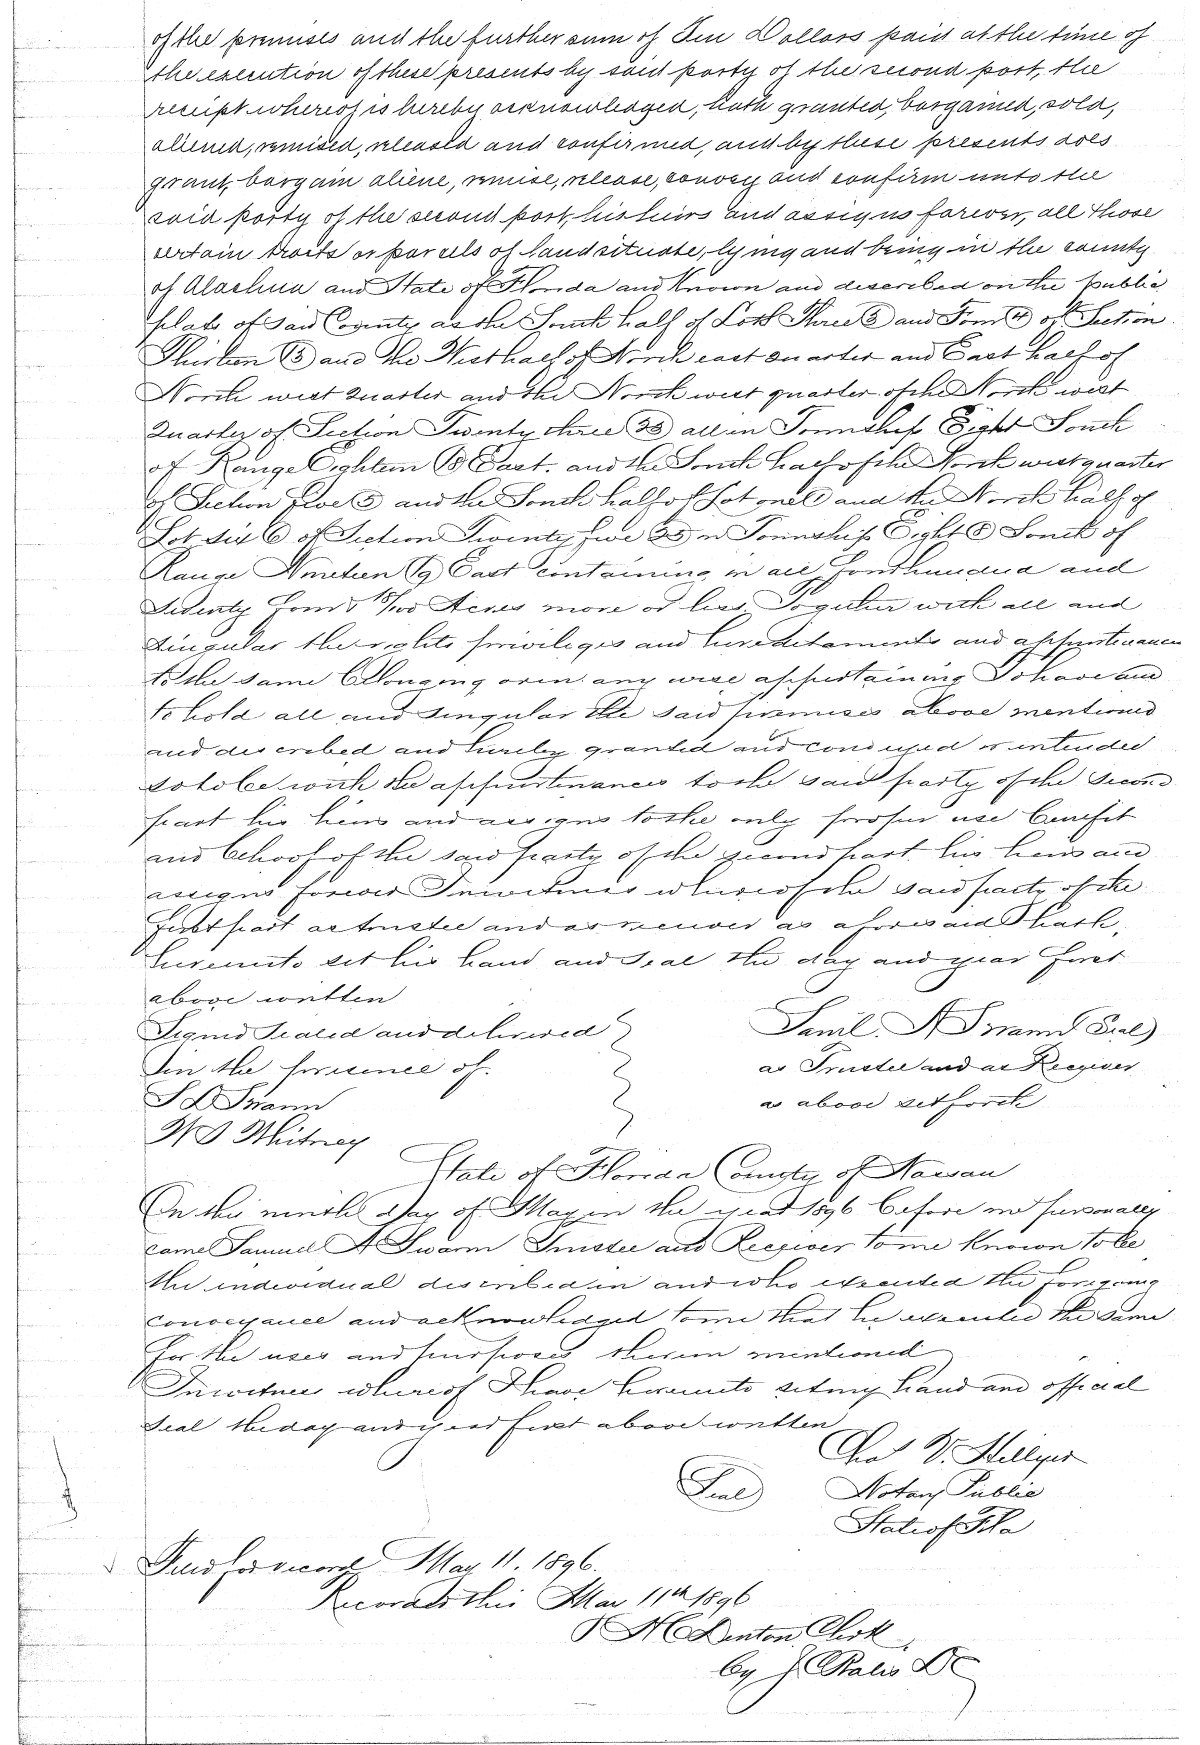 of the premises and the further sum of Ten Dollars paid at the time of
the execution of these presents by said party of the second part, the
receipt whereof is hereby acknowledged, hath granted, bargained, sold,
aliened, remised, released and confirmed, and by these presents does
grant, bargain aliene, remise, release, convey and confirm unto the
said party of the second part, his heirs and assigns forever, all those
certain tracts or parcels of land situate, lying and being in the county
of Alachua and State of Florida and Known and described on the public
plats of said County as the South half of Lots Three 3 and Four 4 of Section
Thirteen 13 and the West half of North east quarter and East half of
North west quarter and the North west quarter of the North west
Quarter of Section Twenty three 23 all in Township Eight South
of Range Eighteen 18 East. and the South half of the North west quarter
of Section Five 5 and the South half of Lot one 1 and the North half of
Lot six 6 of Section Twenty five 25 in Township Eight 8 South of
Range Nineteen 19 East containing in all Four hundred and
Seventy Four & /100 Acres more or less Together with all and
singular the rights privileges and hereditaments and appurtenances
to the same belonging or in any wise appertaining To have and
to hold all and singular the said premises above mentioned
and described and hereby granted and conveyed or intended
so to be with the appurtenances to the said party of the second
part his heirs and assigns to the only proper use benefit
and behoof of the said party of the second part his heirs and
assigns forever In witness whereof the said party of the
first part as trustee and as receiver as aforesaid hath
hereunto set his hand and seal the day and year first
above written
Signed Sealed and delivered
in the presence of.
Saml. A Swann (Seal)
as Trustee and as Receiver
as above set forth
S D Swann
W J Whitney
State of Florida County of Nassau
On this ninth day of May in the year 1896 before me personally
came Samuel A Swann Trustee and Receiver to me Known to be
the individual described in and who executed the foregoing
conveyance and acknowledged to me that he executed the same
for the uses and purposes therein mentioned
In witness whereof I have hereunto set my hand and official
seal the day and year first above written
Chas V. Hillyer
(Seal) Notary Public
State of Fla
Filed for record May 11. 1896.
Recorded this May 11th 1896
H C Denton Clerk
by J. DC